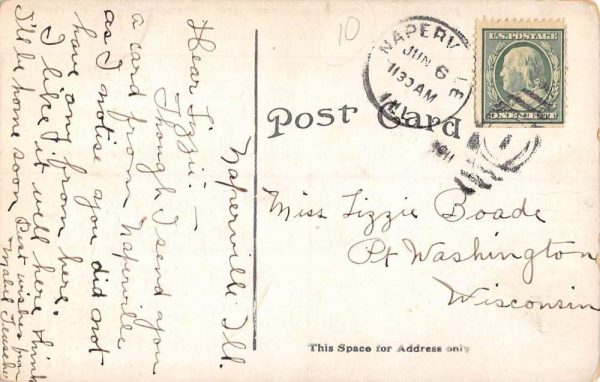 Naperville Ill.
Dear Lizzie: —
Though I send you
a card from Naperville
as I notise you did not
have any from here.
I like it well here. think
I'll be home soon. Best wishes from
Mabel
10
NAPERVILLE
JUN 6
1130 AM
ILL.
1911
U.S. POSTAGE
ONE CENT
1
Post Card
Miss Lizzie Boade
Pt Washington
Wisconsin
This Space for Address only